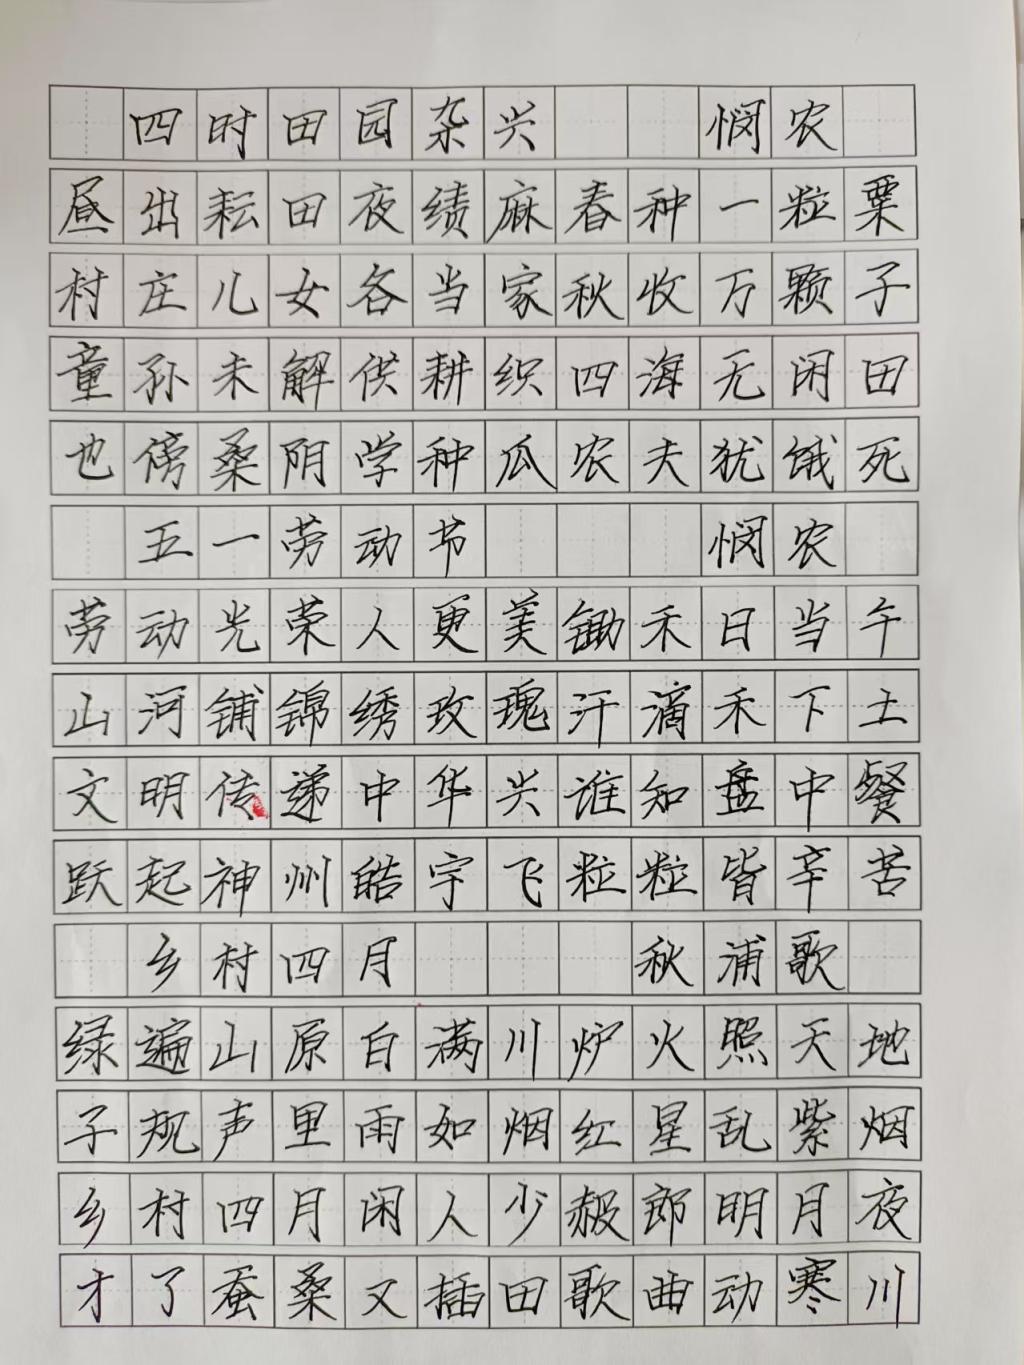 四时田园杂兴 悯农
昼出耘田夜绩麻春种一粒粟
村庄儿女各当家秋收万颗子
童孙未解供耕织四海无闲田
也傍桑阴学种瓜农夫犹饿死
五一劳动节 悯农
劳动光荣人更美锄禾日当午
山河铺锦绣玫瑰汗滴禾下土
文明传递中华兴谁知盘中餐
跃起神州皓宇飞粒粒皆辛苦
乡村四月 秋浦歌
绿遍山原白满川炉火照天地
子规声里雨如烟红星乱紫烟
乡村四月闲人少赧郎明月夜
才了蚕桑又插田歌曲动寒川